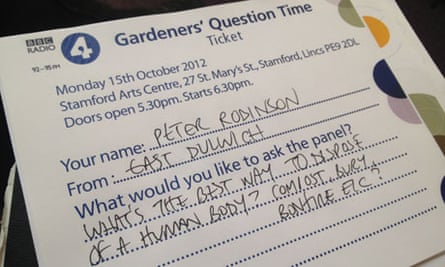 BBC
RADIO
4
92–95 FM
Gardeners' Question Time
Ticket
Monday 15th October 2012
Stamford Arts Centre, 27 St. Mary's St., Stamford, Lincs PE9 2DL
Doors open 5.30pm. Starts 6.30pm.
Your name: PETER RODINSON
From: EAST DULWICH
What would you like to ask the panel?
WHAT'S THE BEST WAY TO DISPOSE
OF A HUMAN BODY? COMPOST, BURY,
BONFIRE ETC?